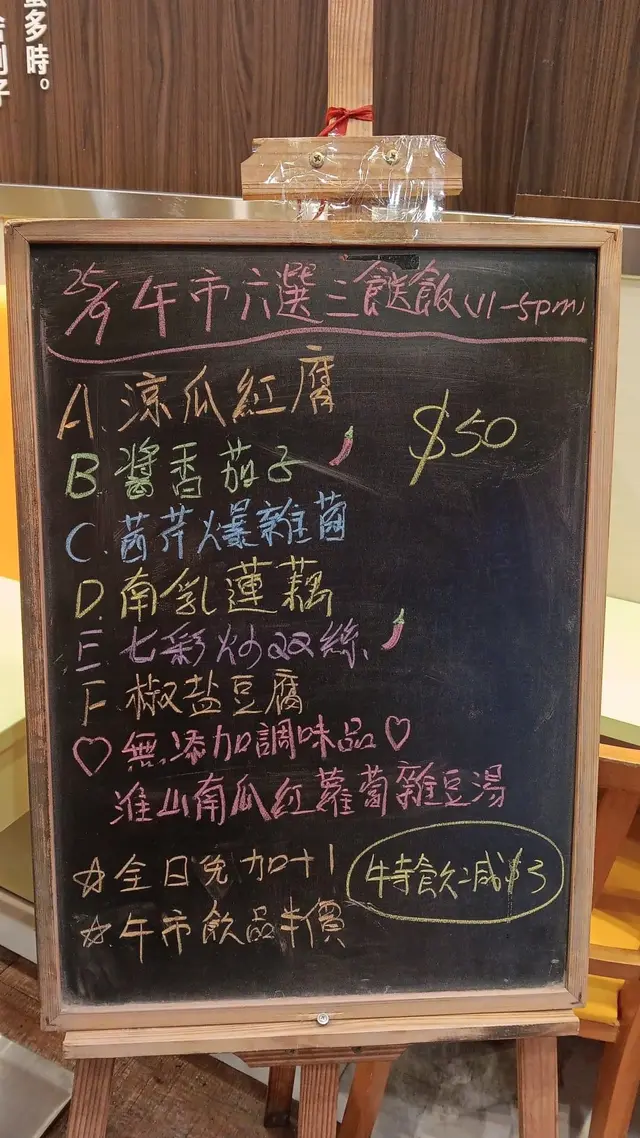 蜜多時。
舍利子
25/9 午市六選三餸飯(11-5pm)
A.涼瓜紅腐
$50
B 醬香茄子
C.茜芹爆雜菌
D.南乳蓮藕
E.七彩炒双絲
F.椒盐豆腐
♡無添加調味品♡
淮山南瓜紅蘿蔔雜豆湯
☆全日免加十1
特飲減$3
☆午市飲品半價